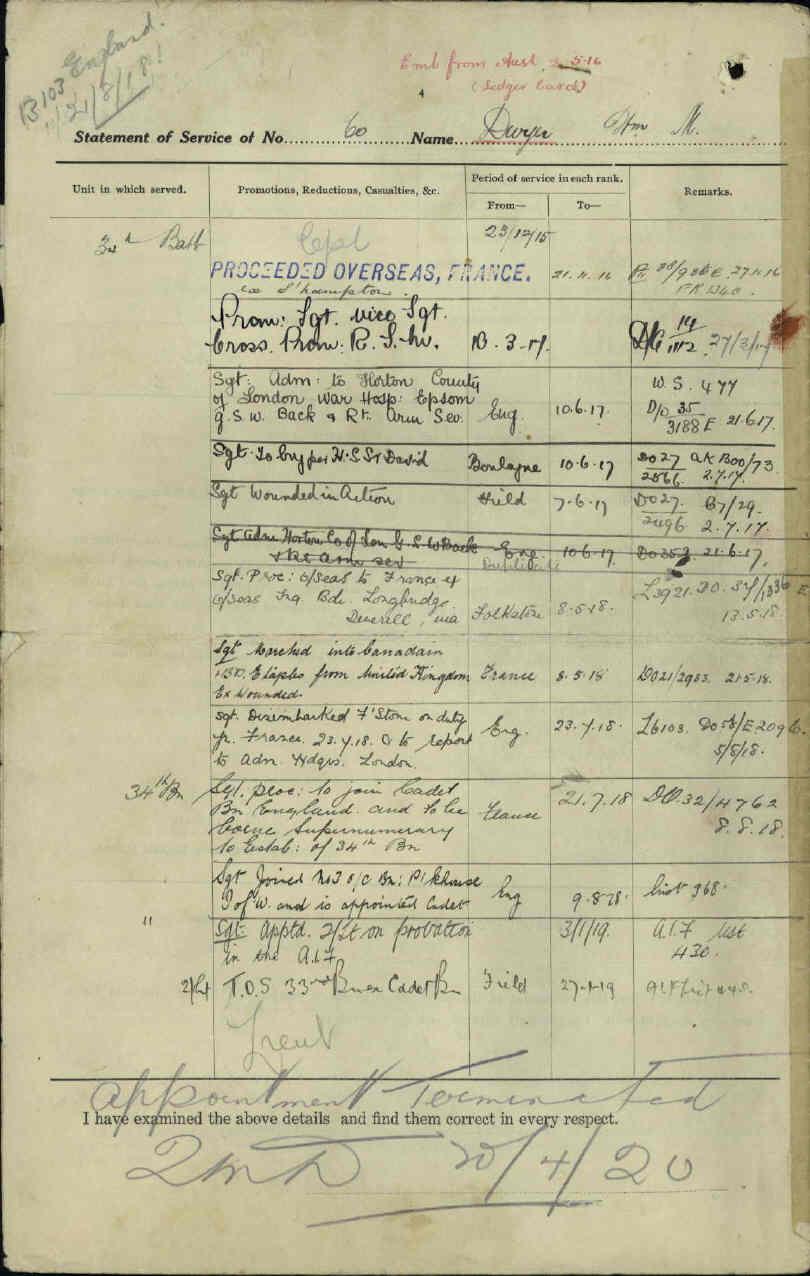 B103 England.
21/8/18!
Emb from Aust 2-5-16
(Ledger Card)
4
Statement of Service of No. 60 Name Dwyer Wm M.
Unit in which served.
Promotions, Reductions, Casualties, &c.
Period of service in each rank.
From—
To—
Remarks.
Batt
Cpl
23/12/15
PROCEEDED OVERSEAS, FRANCE.
S'hampton.
21.11.16
27.11.16
Prom: Sgt. vice Sgt.
Cross. Prom: R.S.M.
10.3.17.
27/3/17
Sgt: Adm: to Horton County
of London War Hosp: Epsom
G.S.W. Back & Rt. Arm Sev.
Eng.
10.6.17.
W.S. 477
D/O 35
3188 E 21.6.17.
Sgt. To Eng per H.S. St David
Boulogne
10-6-17
DO27 AK B00/73
2566 2.7.17.
Sgt Wounded in Action
Field
7-6-17
DO27. B7/29.
2496 2.7.17.
Sgt Adm Horton Co of Lon G.S.W Back
& Rt Arm sev
Eng.
Duplicate
10-6-17
21.6.17.
Sgt. Proc: o/seas to France ex
o/seas Trg. Bde. Longbridge
Deverill, via
Folkstone
8-5-18.
L3921. DO.
13.5.18.
Sgt Marched into Canadian
Etaples from United Kingdom
Ex Wounded.
France
8.5.18
DO21/2903. 21.5.18.
Sgt. Disembarked F'Stone on duty
fr. France. 23.7.18. & to report
to Adm. Hdqrs. London.
Eng.
23.7.18.
L6103. DO 58/E209
5/8/18.
34th Bn
Sgt. proc: to join Cadet
Bn England. and to be
come Supernumerary
to Estab: of 34th Bn
France
21.7.18
DO 32/4762
8.8.18.
Sgt Joined No 3 O/C Bn: P'khouse
I of W. and is appointed Cadet
Eng
9.8.18.
List 368.
"
Sgt Apptd. 2/Lt on probation
in the A.I.F
3/1/19.
A.I.F List
430.
2/Lt
T.O.S 33rd Bn ex Cadet Bn
Field
27-1-19
AIF List 448.
Lieut
appointment Terminated
I have examined the above details and find them correct in every respect.
2MD 20/4/20